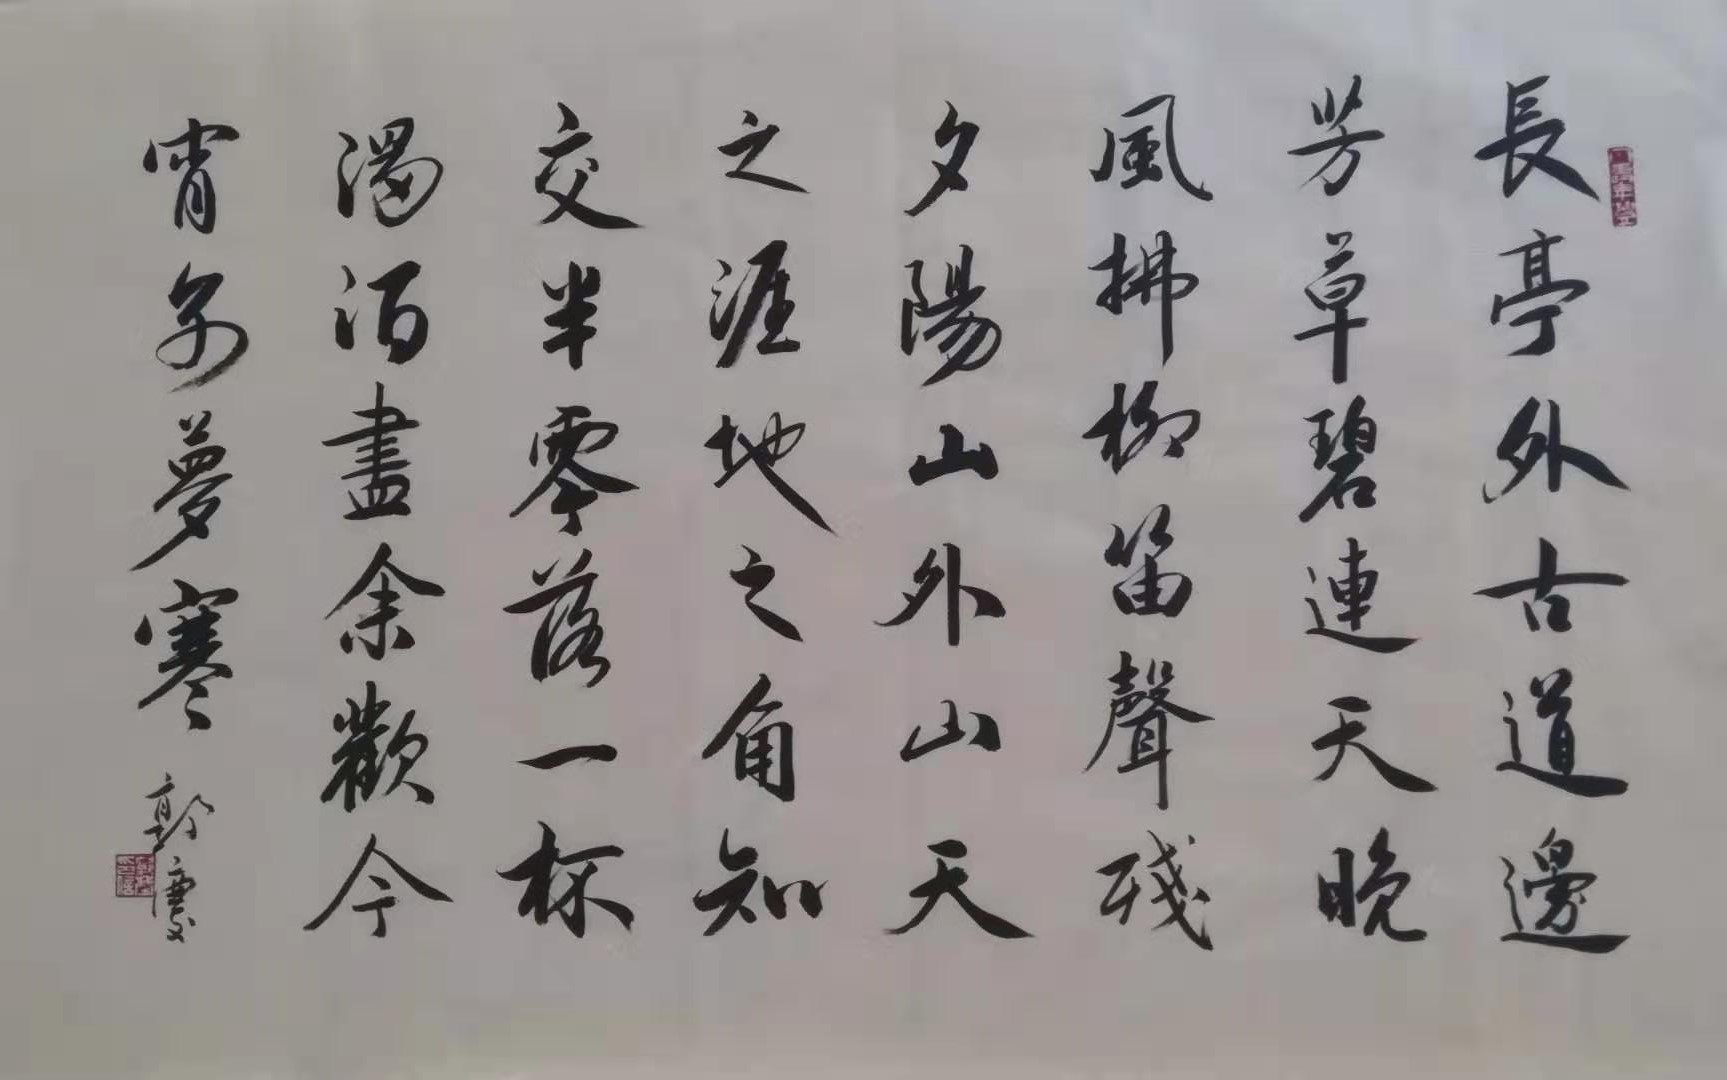 長亭外古道邊
芳草碧連天晚
風拂柳笛聲殘
夕陽山外山天
之涯地之角知
交半零落一杯
濁酒盡余歡今
宵別夢寒
郭慶